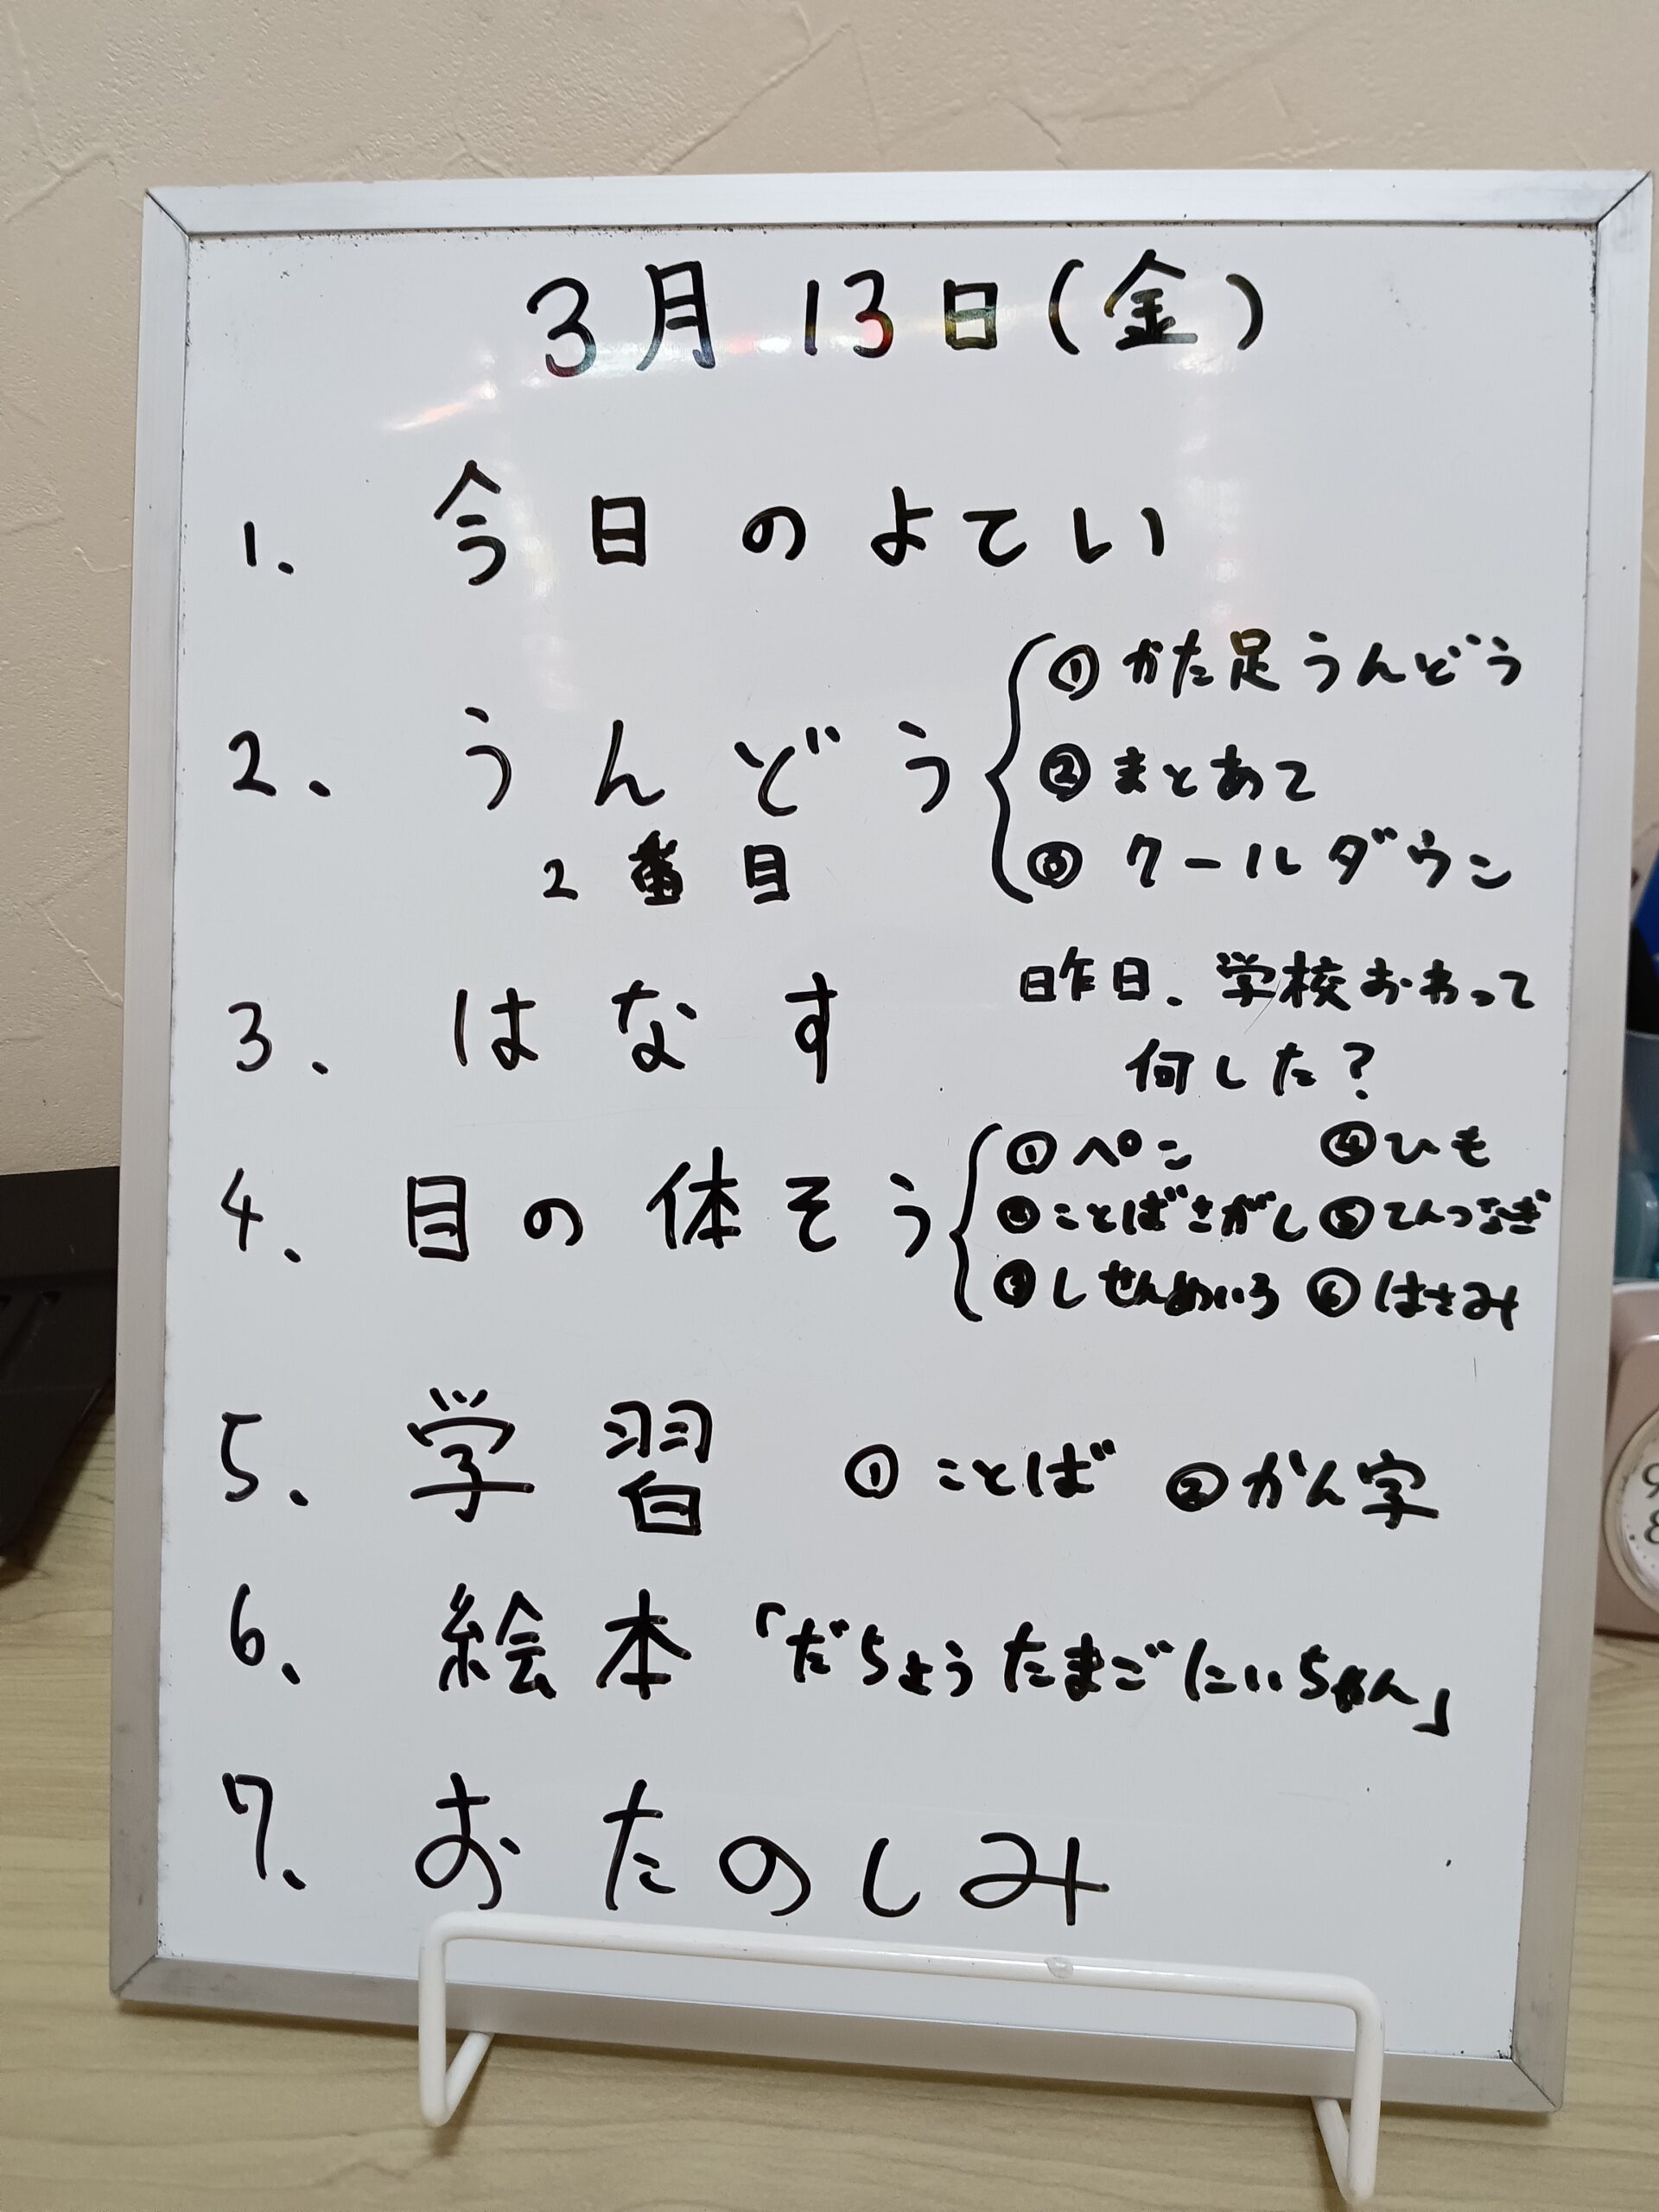 3月13日(金)
1. 今日のよてい
2. うんどう
2番目
①かた足うんどう
②まとあて
③クールダウン
3. はなす
昨日、学校おわって
何した?
4. 目の体そう
①ペン ④ひも
②ことばさがし ⑤てんつなぎ
③しせんめいろ ⑥はさみ
5. 学習 ①ことば ②かん字
6. 絵本「だちょうたまごにいちゃん」
7. おたのしみ
9
8